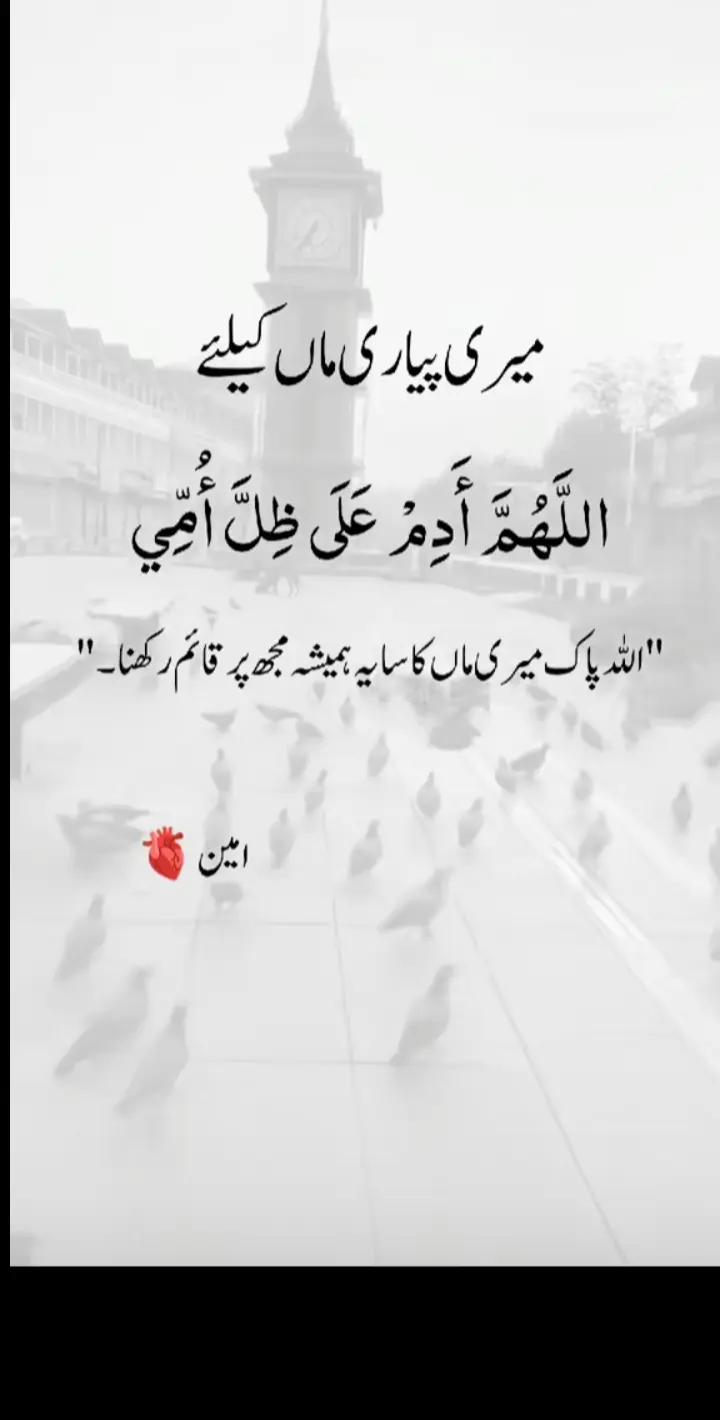 میری پیاری ماں کیلئے
اللَّهُمَّ أَدِمْ عَلَى ظِلَّ أُمِّي
"اللہ پاک میری ماں کا سایہ ہمیشہ مجھ پر قائم رکھنا۔"
امین 🫀